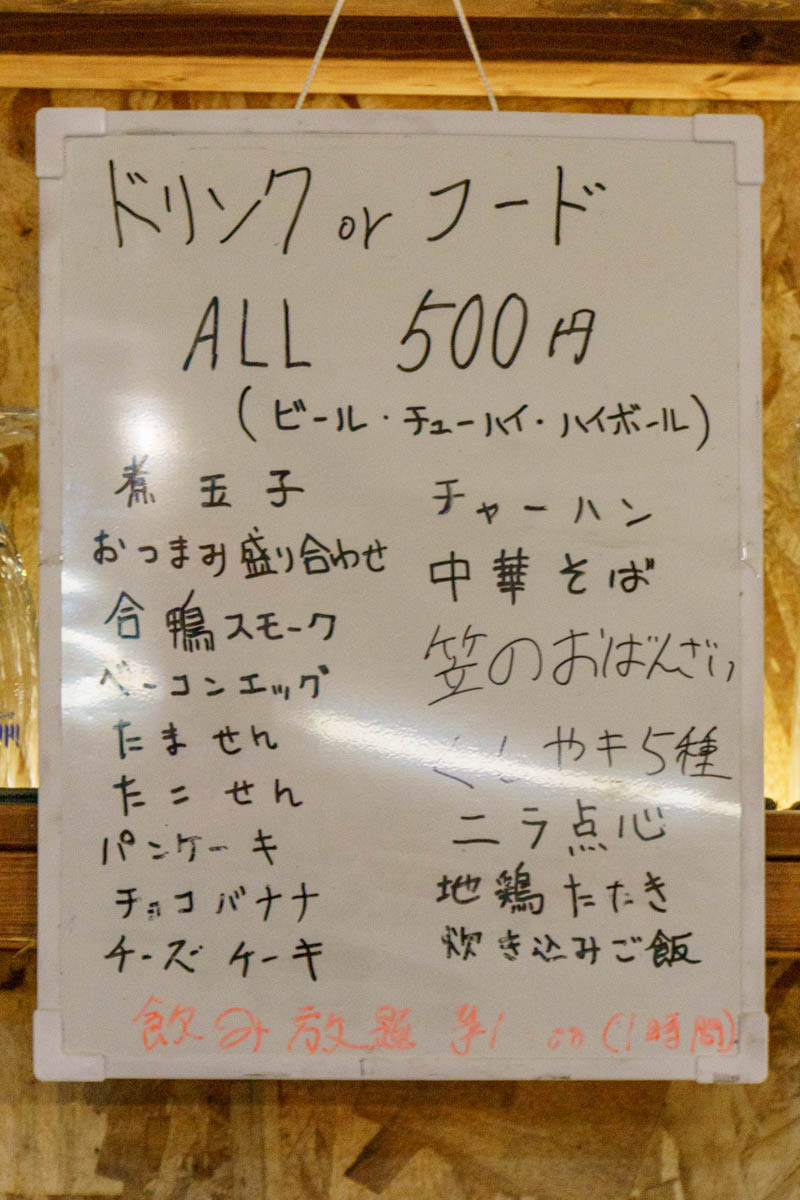 ドリンク or フード
ALL 500円
(ビール・チューハイ・ハイボール)
煮玉子
おつまみ盛り合わせ
合鴨スモーク
ベーコンエッグ
たません
たこせん
パンケーキ
チョコバナナ
チーズケーキ
チャーハン
中華そば
笠のおばんざい
くしやキ5種
ニラ点心
地鶏たたき
炊き込みご飯
飲み放題 (1時間)